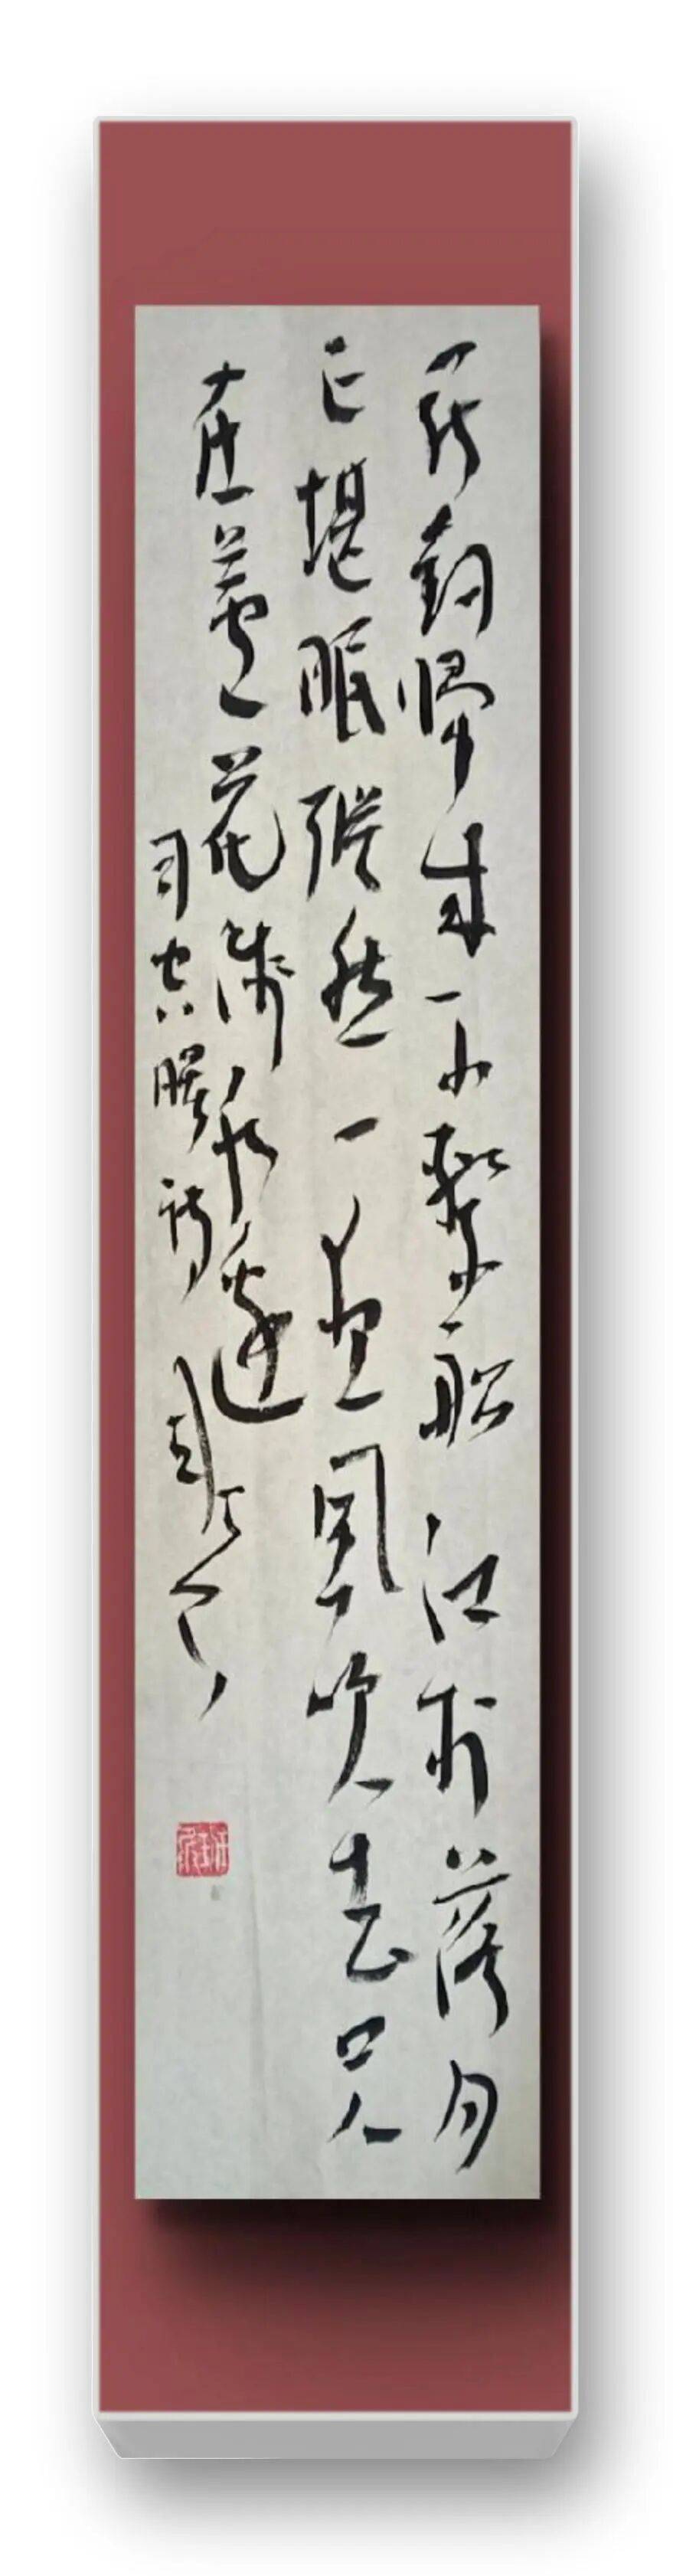 罷釣歸来不繫船江村落月
正堪眠縱然一夜風吹去只
在蘆花淺水邊
司空曙詩